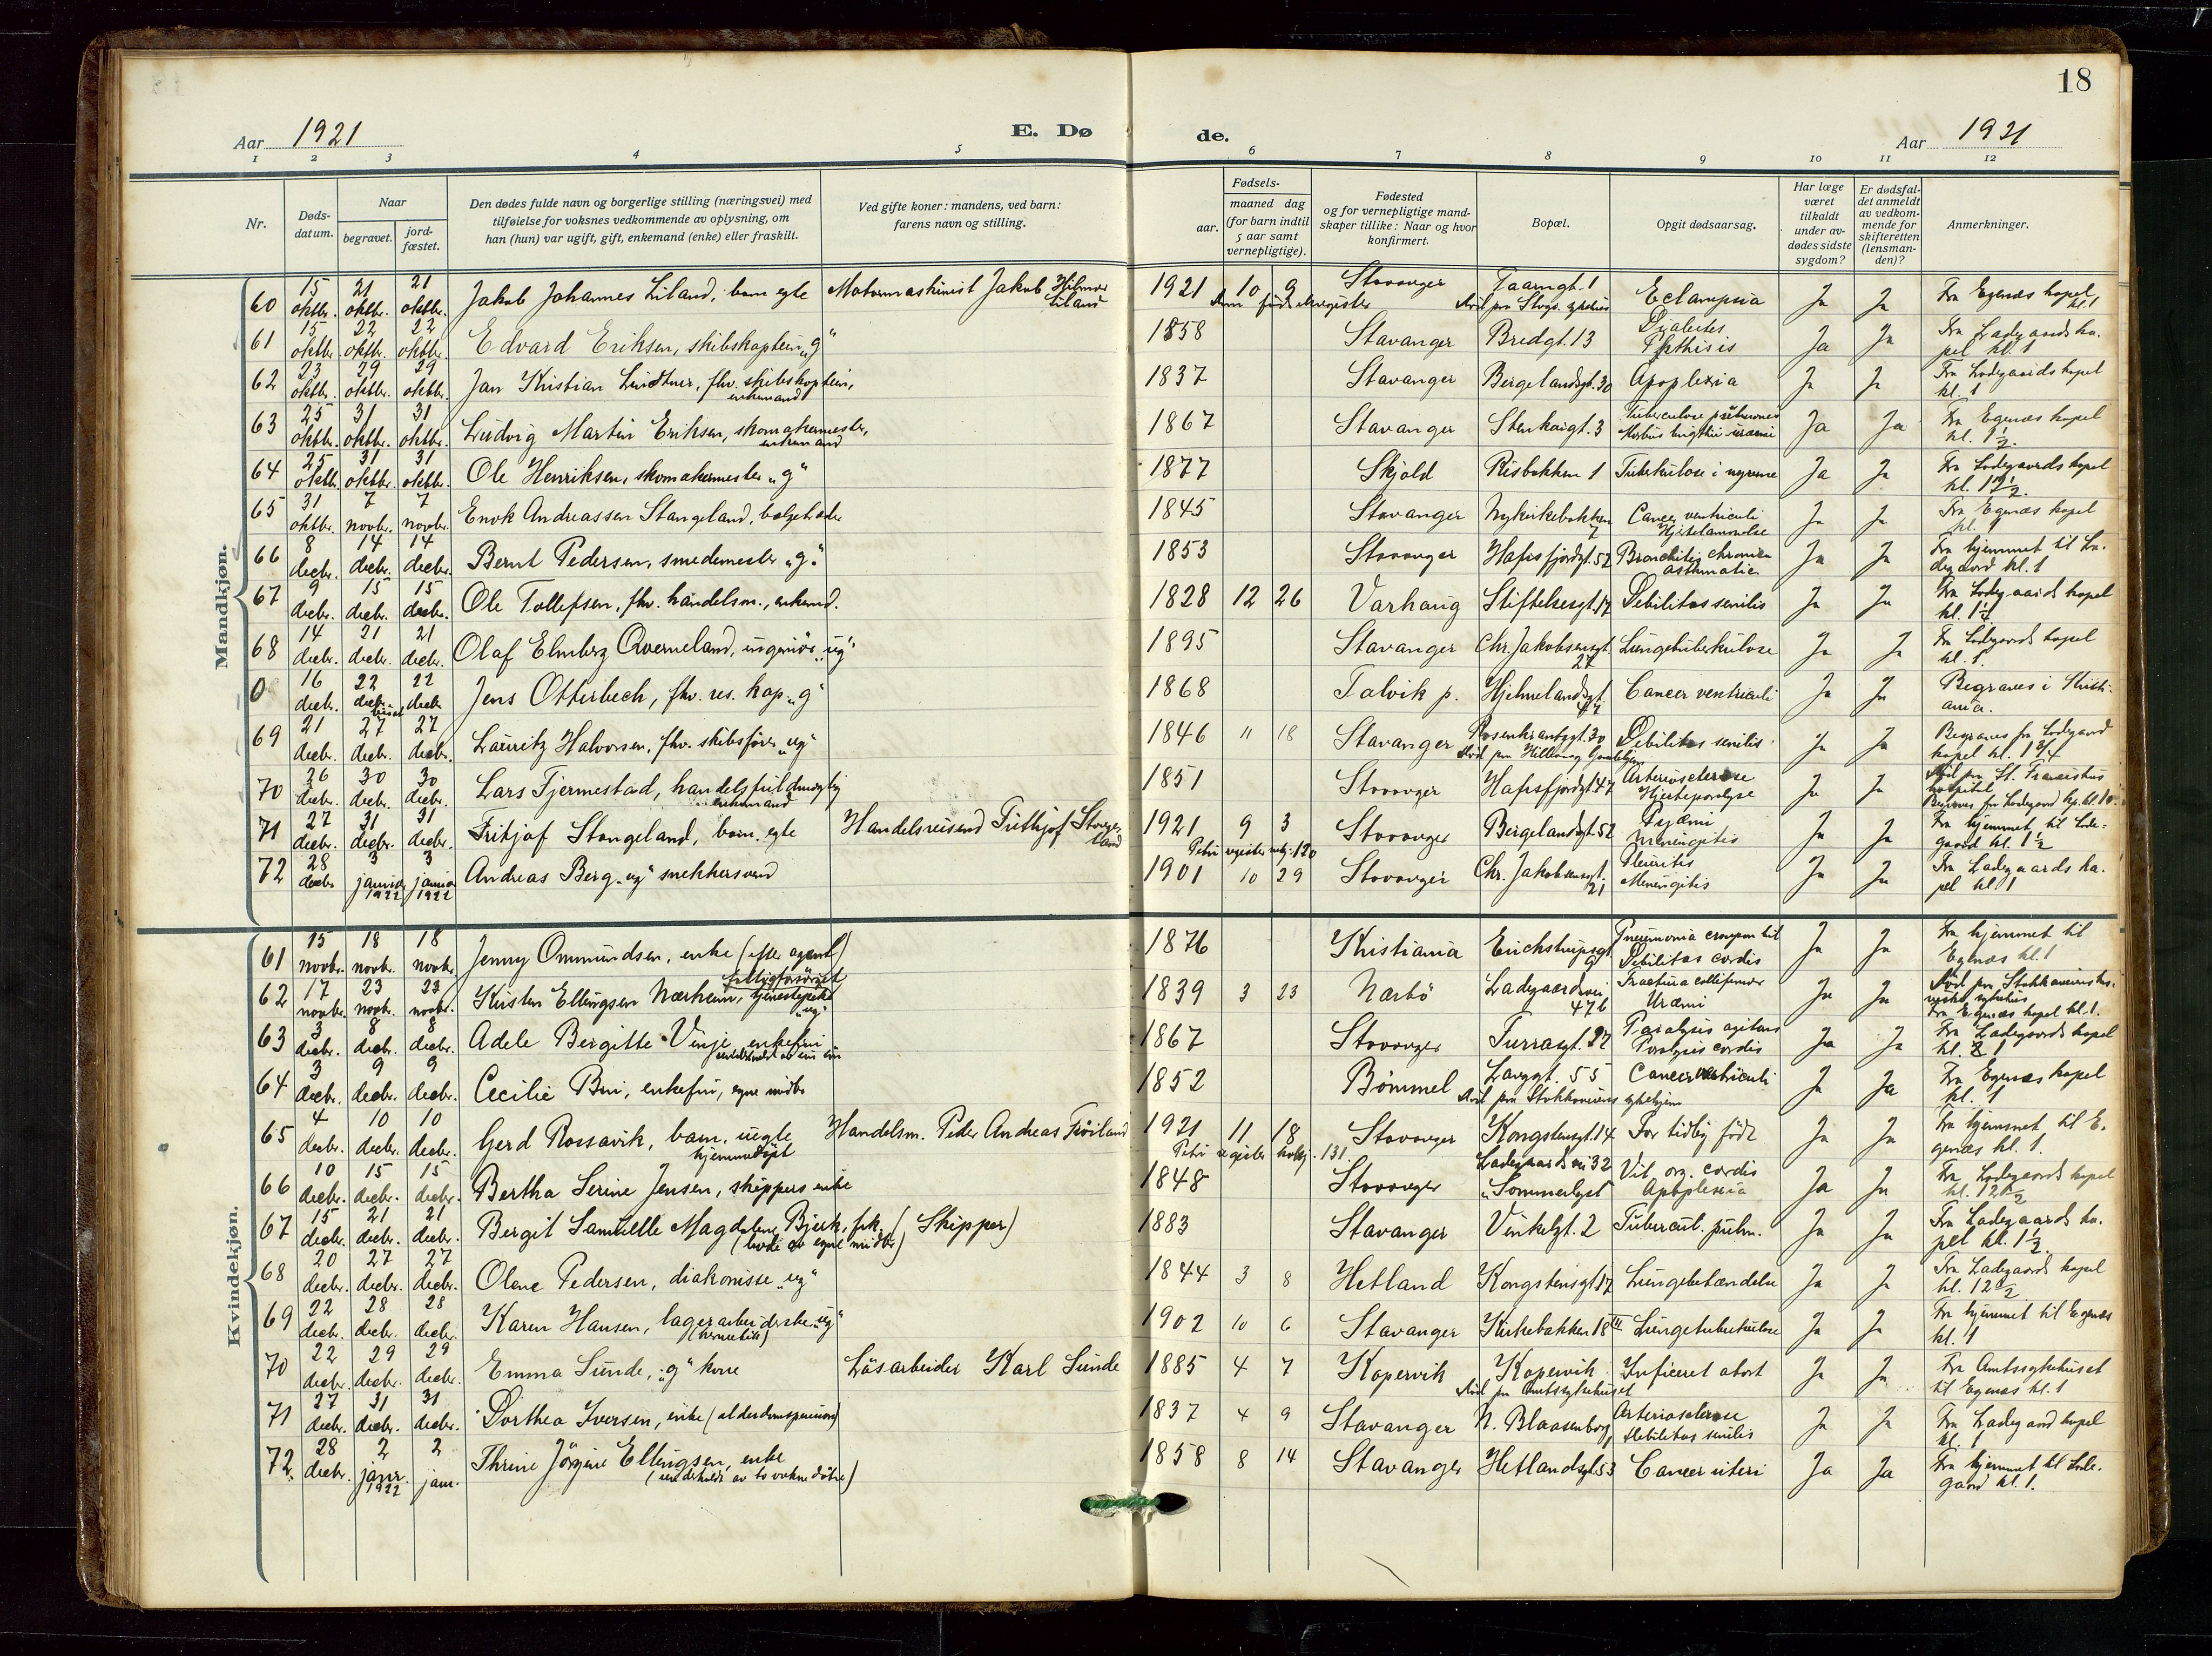 18
Aar 1921
E. Dø
de.
Aar 1921
1 2 3 4 5 6 7 8 9 10 11 12
Nr.
Døds-
datum.
Naar
begravet.
jord-
fæstet.
Den dødes fulde navn og borgerlige stilling (næringsvei) med
tilføielse for voksnes vedkommende av oplysning, om
han (hun) var ugift, gift, enkemand (enke) eller fraskilt.
Ved gifte koner: mandens, ved barn:
farens navn og stilling.
Fødsels-
aar.
maaned dag
(for barn indtil
5 aar samt
vernepligtige).
Fødested
og for vernepligtige mand-
skaper tillike: Naar og hvor
konfirmert.
Bopæl.
Opgit dødsaarsag.
Har læge
været
tilkaldt
under av-
dødes sidste
sygdom?
Er dødsfal-
det anmeldt
av vedkom-
mende for
skifteretten
(lensman-
den)?
Anmerkninger.
Mandkjøn.
60 15 oktbr. 21 oktbr. 21 oktbr. Jakob Johannes Liland, barn egte Motormaskinist Jakob Hilmar Liland 1921 10 9 Stavanger Taarngt. 1 Eclampsia Ja Ja Fra Egenæs kapel, kl. 1
61 15 oktbr. 22 oktbr. 22 oktbr. Edvard Eriksen, skibskaptein „g" 1858 Stavanger Bredgt. 13 Diabetes Phthisis Ja Ja Fra Ladegaards ka-
pel kl. 1
62 23 oktbr. 29 oktbr. 29 oktbr. Jan Kristian Lindtner, fhv. skibskaptein, enkemand 1837 Stavanger Bergelandsgt. 30 Apoplexia Ja Ja Fra Ladegaards kapel
kl. 1
63 25 oktbr. 31 oktbr. 31 oktbr. Ludvig Martin Eriksen, skomakermester, enkemand 1867 Stavanger Stenkargt. 3 Tuberculose pulmones Ja Ja Fra Egenæs kapel
kl. 1½.
64 25 oktbr. 31 oktbr. 31 oktbr. Ole Henriksen, skomakermester „g" 1877 Skjold Risbakken 1 Tuberkulose i nyrerne Ja Ja Fra Ladegaards kapel
kl. 12½.
65 31 oktbr. 7 novbr. 7 novbr. Enok Andreassen Stangeland, 1845 Stavanger Nykirkebakken 7 Cancer ventriculi Ja Ja Fra Egenæs kapel
kl. 1
66 8 decbr. 14 decbr. 14 decbr. Bernt Pedersen, smedemester „g". 1853 Stavanger Hafrsfjordgt. 52 Bronchitis chronica asthmatica Ja Ja Fra hjemmet til La-
degaard kl. 1
67 9 decbr. 15 decbr. 15 decbr. Ole Tollefsen, fhv. handelsm., enkemd. 1828 12 26 Varhaug Stiftelsesgt. 17 Debilitas senilis Ja Ja Fra Ladegaards kapel
kl. 1¼
68 14 decbr. 21 decbr. 21 decbr. Olaf Elmberg Qverneland, ingeniør „ug" 1895 Stavanger Chr. Jakobsensgt 27 Lungetuberkulose Ja Ja Fra Ladegaards kapel
kl. 1.
0 16 decbr. 22 decbr. 22 decbr. Jens Otterbech, fhv. res. kap. „g" 1868 Talvik p. Hjelmelandsgt. Cancer ventriculi Ja Ja Begraves i Kristi-
ania.
69 21 decbr. 27 decbr. 27 decbr. Lauritz Halvorsen, fhv. skibsfører „ug" 1846 11 18 Stavanger Rosenkrantzgt. 30 Debilitas senilis Ja Ja Begraves fra Ladegaard
kapel kl. 1¾
70 26 decbr. 30 decbr. 30 decbr. Lars Tjermestad, handelsfuldmægtig enkemand 1851 Stavanger Hafrsfjordgt. 47 Arteriosclerose Hjerteparalyse Ja Ja Død paa St. Franciskus
hospital
71 27 decbr. 31 decbr. 31 decbr. Fritjof Stangeland, barn egte Handelsreisend Frithjof Stangeland 1921 9 3 Stavanger Bergelandsgt. 52 Pyæmi Meningitis Ja Ja Fra hjemmet til Lade-
gaard kl. 1½
Petri register 120
72 28 decbr. 3 januar 1922 3 januar 1922 Andreas Berg „ug" snekkersvend 1901 10 29 Stavanger Chr. Jakobsensgt. 21 Pleuritis Meningitis Ja Ja Fra Ladegaards ka-
pel kl. 1
Kvindekjøn.
61 15 novbr. 18 novbr. 18 novbr. Jenny Ommundsen, enke (efter agent) 1876 Kristiania Erichstrupsgt 9 Pneumonia croupøs Debilitas cordis Ja Ja Fra hjemmet til
Egenæs kl. 1
62 17 novbr. 23 novbr. 23 novbr. Kirsten Ellingsen Nærheim, fattigforsørget tjenestepike „ug" 1839 3 23 Nærbø Ladegaardsvei 47b Fractura colli femor Uræmi Ja Ja
Fra Egenæs kapel kl. 1.
63 3 decbr. 8 decbr. 8 decbr. Adele Bergitte Vinje, enkefru 1867 Stavanger Turragt. 27 Paralysis agitans Paralysis cordis Ja Ja Fra Ladegaards kapel
kl. 1
64 3 decbr. 9 decbr. 9 decbr. Cecilie Bui, enkefru, egne midler 1852 Bømmel Langgt. 55 Cancer ventriculi Ja Ja Fra Egenæs kapel
kl. 1
65 4 decbr. 10 decbr. 10 decbr. Gerd Rossavik, barn, uegte hjemmedøpt Handelsm. Peder Andreas Frøiland 1921 11 18 Stavanger Kongstensgt. 14 For tidlig født Ja Ja Fra hjemmet til E-
genæs kl. 1.
Petri register 131.
66 10 decbr. 15 decbr. 15 decbr. Bertha Serine Jensen, skippers enke 1848 Stavanger Ladegaardsvei 32 „Sommerlyst" Vit. org. cordis Apoplexia Ja Ja Fra Ladegaards kapel
kl. 12½
67 15 decbr. 21 decbr. 21 decbr. Bergit Samuelle Magdalene Bjerk, frk. (levde av egne midler) (Skipper) 1883 Stavanger Vinkelgt. 2 Tubercul. pulm. Ja Ja Fra Ladegaards ka-
pel kl. 1½.
68 20 decbr. 27 decbr. 27 decbr. Olene Pedersen, diakonisse „ug" 1844 3 8 Hetland Kongstensgt. 17 Lungebetændelse Ja Ja Fra Ladegaards kapel
kl. 12½
69 22 decbr. 28 decbr. 28 decbr. Karen Hansen, lagerarbeiderske „ug" (hermetik) 1902 10 6 Stavanger Kirkebakken 18 III Lungetuberkulose Ja Ja Fra hjemmet til Egenæs
kl. 1
70 22 decbr. 29 decbr. 29 decbr. Emma Sunde, „g" kone Løsarbeider Karl Sunde 1885 4 7 Kopervik Kopervik Inficeret abort Ja Ja Fra Amtssykehuset
til Egenæs kl. 1
Død paa Amtssykehuset
71 27 decbr. 31 decbr. 31 decbr. Dorthea Iversen, enke (alderdomspension) 1837 4 9 Stavanger N. Blaasenborg 1 Arteriosclerose Debilitas senilis Ja Ja Fra Ladegaard kapel
kl. 1
72. 28 decbr. 2 janr. 1922 2 janr. Thrine Jørgine Ellingsen, enke (underholdt av to voksne døtre) 1858 8 14 Stavanger Hetlandsgt. 53 Cancer uteri Ja Ja Fra hjemmet til Lade-
gaard kl. 1.